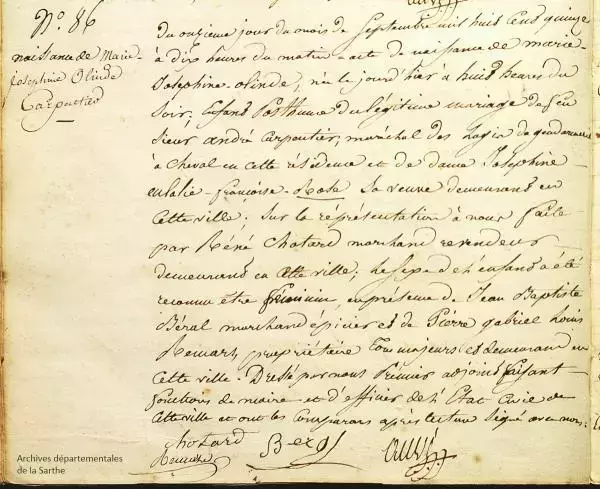 N.° 86
naissance de Marie
Josephine Olinde
Carpentier
du onzieme jour du mois de Septembre mil huit cent quinze
à dix heures du matin acte de naissance de marie
Josephine olinde, née le jour d'hier à huit heures du
Soir, Enfant Posthume du légitime mariage de feu
Sieur andré Carpentier, maréchal des Logis de gendarmerie
à cheval en cette résidence et de dame Josephine
eulalie françoise Rose Sa veuve demeurant en
Cette ville; Sur la réprésentation à nous faite
par Réné Chotard marchand revendeur
demeurant en Cette ville; le sexe de l'enfant a été
reconnu être féminin, en présence de Jean Baptiste
Béral marchand épicier et de Pierre gabriel Louis
propriétaire tous majeurs et demeurant en
Cette ville. Dressé par nous Prémier adjoint faisant
fonctions de maire et d'officier de l'Etat Civil de
Cette ville et ont les Comparans après lecture signé avec nous.
Chotard
Beral
Archives départementales
de la Sarthe